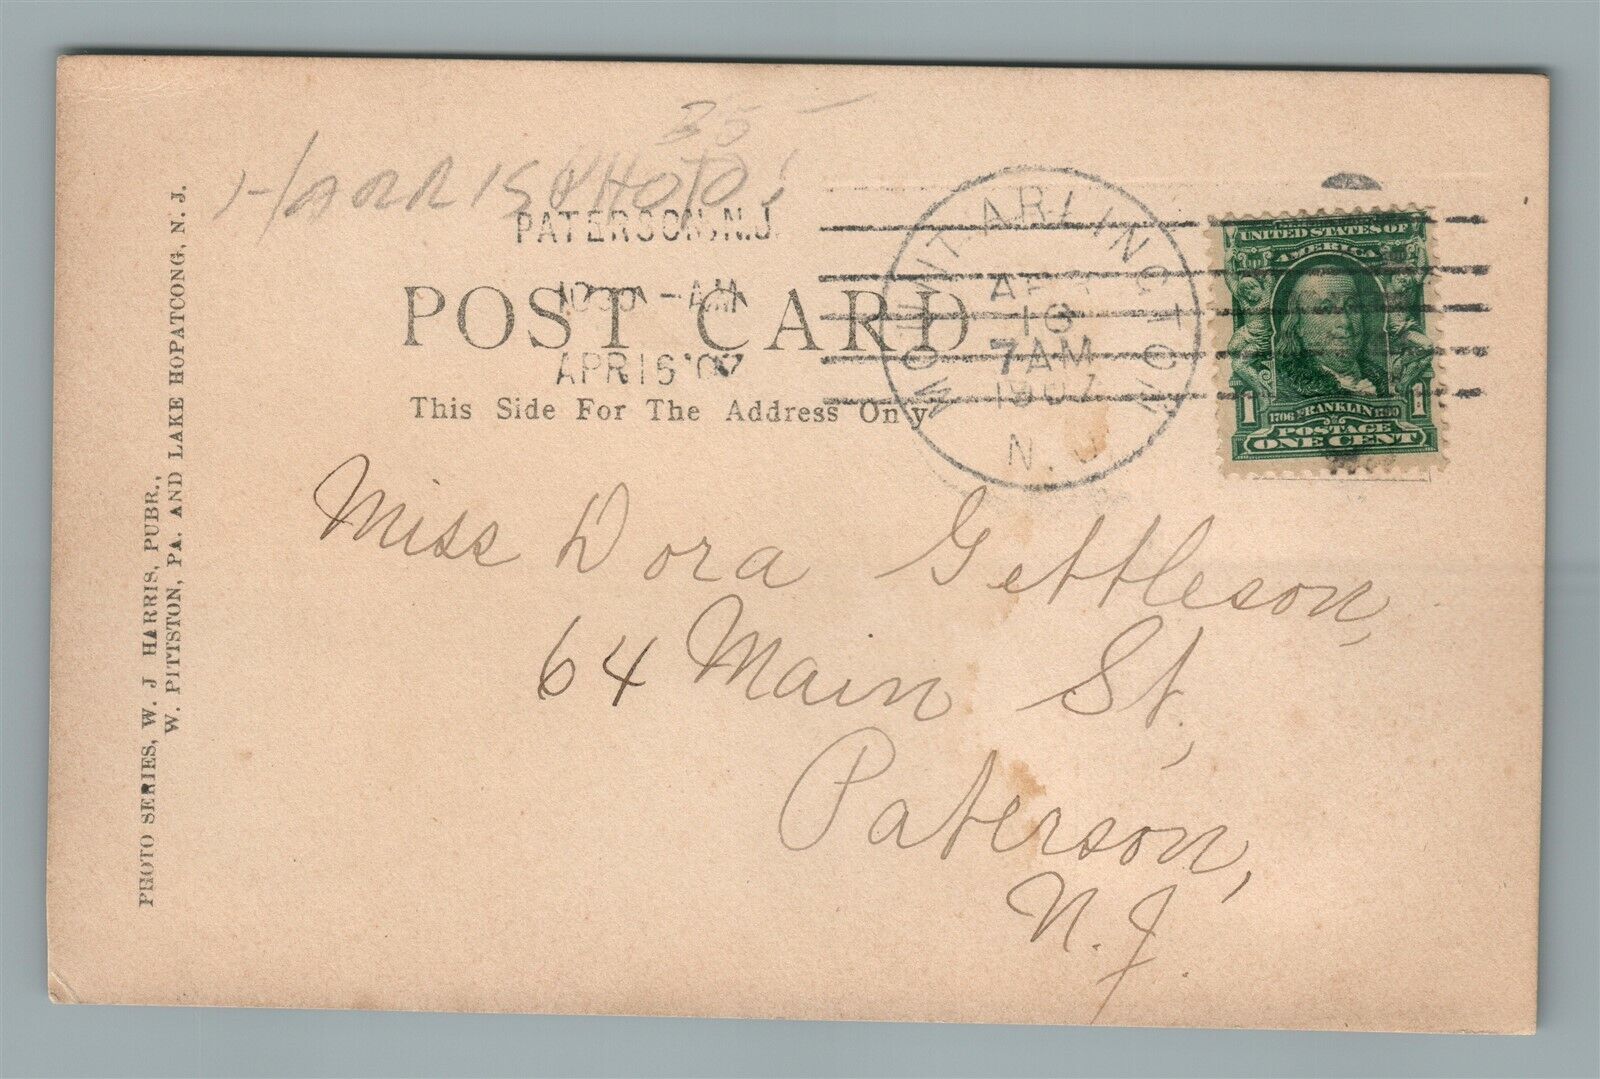 35 —
HARRIS PHOTO!
PATERSON, N.J.
-AM
APR 16 '07
MOUNT ARLINGTON
APR
16
7 AM
1907
N.J.
UNITED STATES OF
AMERICA
1706 FRANKLIN 1790
1 1
POSTAGE
ONE CENT
POST CARD
This Side For The Address Only
Miss Dora Gettleson,
64 Main St.,
Paterson,
N.J.
PHOTO SERIES, W. J HARRIS, PUBR.,
W. PITTSTON, PA. AND LAKE HOPATCONG, N. J.